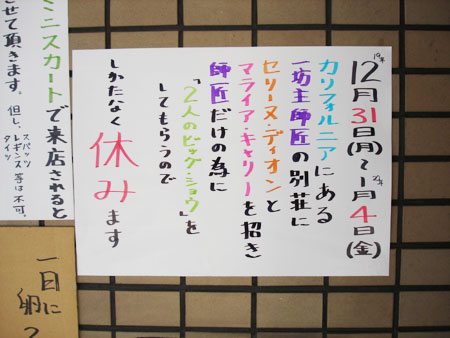 19年
12月31日(月)〜1月4日(金)
カリフォルニアにある
一坊主師匠の別荘に
セリーヌ・ディオンと
マライア・キャリーを招き
師匠だけの為に
「2人のビッグ・ショウ」を
してもらうので
しかたなく休みます
ミニスカートで来店されると
させて頂きます。但し、スパッツ
レギンス等は不可。
タイツ
一日に
卵